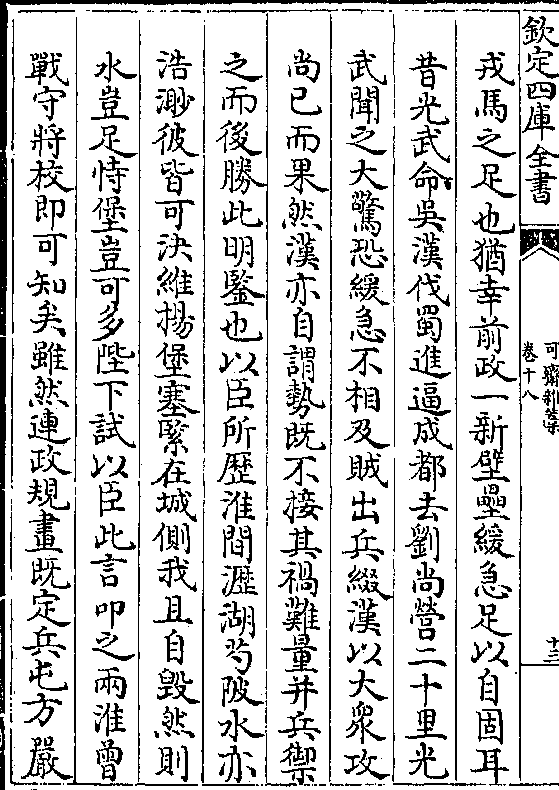 欽定四庫全書
可齋雜藁
卷十八
十三
戎馬之足也猶幸前政一新壁壘緩急足以自固耳
昔光武命吳漢伐蜀進逼成都去劉尚營二十里光
武聞之大驚恐緩急不相及賊出兵綴漢以大衆攻
尚已而果然漢亦自謂勢既不接其禍難量并兵禦
之而後勝此明鑒也以臣所歴淮間瀝湖芍陂水亦
浩渺彼皆可決維揚堡塞緊在城側我且自毀然則
水豈足恃堡豈可多陛下試以臣此言叩之兩淮曾
戰守將校即可知矣雖然連政規畫既定兵屯方嚴